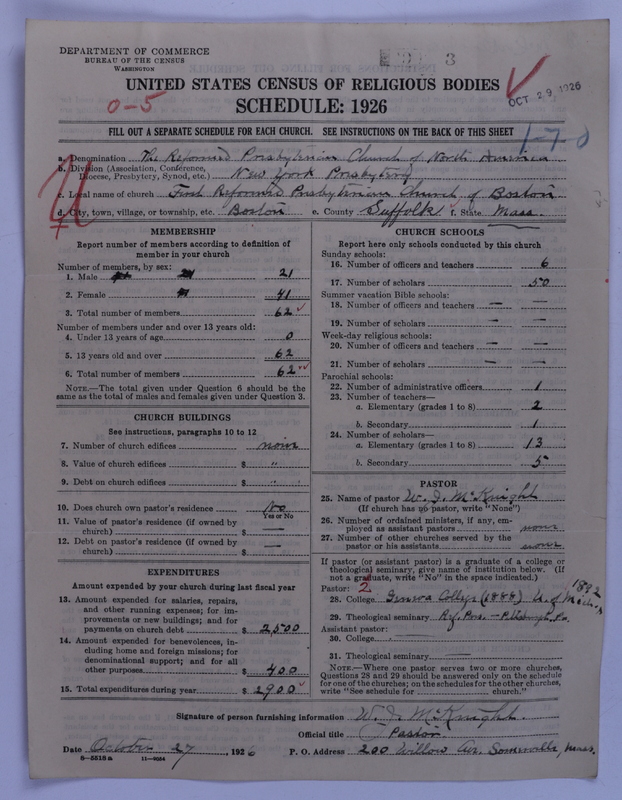 DEPARTMENT OF COMMERCE
BUREAU OF THE CENSUS
WASHINGTON
UNITED STATES CENSUS OF RELIGIOUS BODIES
SCHEDULE: 1926
OCT 29 1926
0-5
1-7-0
FILL OUT A SEPARATE SCHEDULE FOR EACH CHURCH. SEE INSTRUCTIONS ON THE BACK OF THIS SHEET
a. Denomination The Reformed Presbyterian Church of North America
b. Division (Association, Conference, Diocese, Presbytery, Synod, etc.) New York Presbytery
c. Local name of church First Reformed Presbyterian Church of Boston
d. City, town, village, or township, etc. Boston e. County Suffolk f. State Mass.
MEMBERSHIP
Report number of members according to definition of
member in your church
Number of members, by sex:
1. Male 21
2. Female 41
3. Total number of members 62
Number of members under and over 13 years old:
4. Under 13 years of age 0
5. 13 years old and over 62
6. Total number of members 62
NOTE.—The total given under Question 6 should be
same as the total of males and females given under Question 3.
CHURCH BUILDINGS
See instructions, paragraphs 10 to 12
7. Number of church edifices none
8. Value of church edifices $ "
9. Debt on church edifices $ "
10. Does church own pastor's residence No
Yes or No
11. Value of pastor's residence (if owned by
church) $
12. Debt on pastor's residence (if owned by
church) $ —
EXPENDITURES
Amount expended by your church during last fiscal year
13. Amount expended for salaries, repairs,
and other running expenses; for im-
provements or new buildings; and for
payments on church debt $ 2500
14. Amount expended for benevolences, in-
cluding home and foreign missions; for
denominational support; and for all
other purposes $ 400
15. Total expenditures during year $ 2900
CHURCH SCHOOLS
Report here only schools conducted by this church
Sunday schools:
16. Number of officers and teachers 6
17. Number of scholars 50
Summer vacation Bible schools:
18. Number of officers and teachers — —
19. Number of scholars — —
Week-day religious schools:
20. Number of officers and teachers — —
21. Number of scholars — —
Parochial schools:
22. Number of administrative officers 1
23. Number of teachers—
a. Elementary (grades 1 to 8) 2
b. Secondary 1
24. Number of scholars—
a. Elementary (grades 1 to 8) 13
b. Secondary 5
PASTOR
25. Name of pastor W. J. McKnight
(If church has no pastor, write "None")
26. Number of ordained ministers, if any, em-
ployed as assistant pastors none
27. Number of other churches served by the
pastor or his assistants none
If pastor (or assistant pastor) is a graduate of a college or
theological seminary, give name of institution below. (If
not a graduate, write "No" in the space indicated.)
Pastor: 2
28. College Geneva College (1888) U. of Mich. 1892
29. Theological seminary Ref. Pres. — Pittsburgh, Pa.
Assistant pastor:
30. College —
31. Theological seminary —
NOTE.—Where one pastor serves two or more churches,
Questions 28 and 29 should be answered only on the schedule
for one of the churches; on the schedules for the other churches,
write "See schedule for church."
Signature of person furnishing information W. J. McKnight
Official title Pastor
Date October 27, 1926 P. O. Address 200 Willow Av. Somerville, Mass.
8—5518 a 11—9054